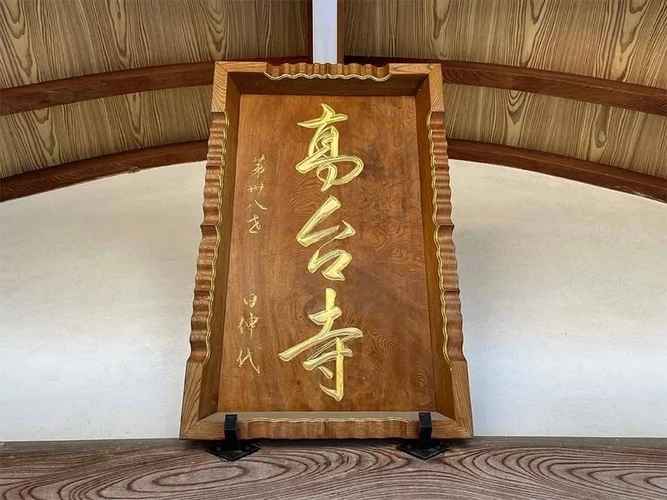 高台寺
第卅八世
日伸代